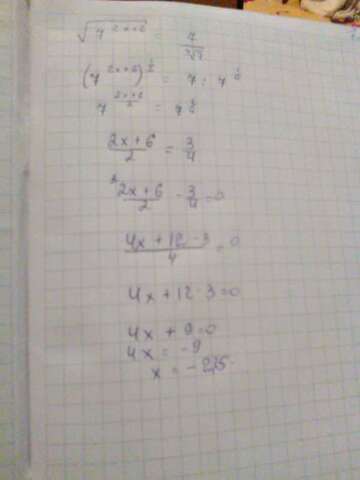 √7^(2x+6) = 7/∜7
(7^(2x+6))^(1/2) = 7 : 7^(1/4)
7^((2x+6)/2) = 7^(3/4)
(2x+6)/2 = 3/4
²(2x+6)/2 - 3/4 = 0
(4x + 12 - 3)/4 = 0
4x + 12 - 3 = 0
4x + 9 = 0
4x = -9
x = -2,25